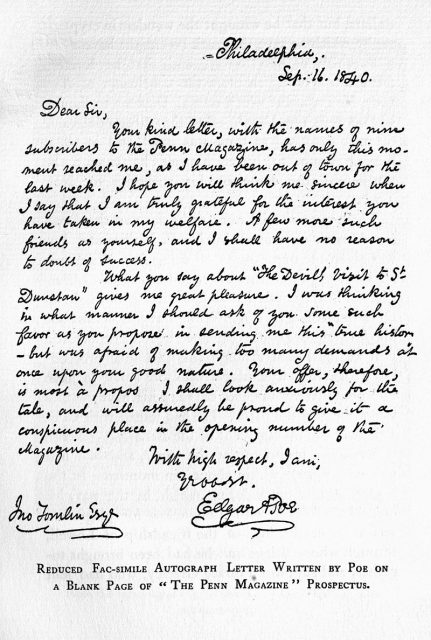 Philadelphia,
Sep. 16. 1840.
Dear Sir,
Your kind letter, with the names of nine
subscribers to the Penn Magazine, has only this mo-
ment reached me, as I have been out of town for the
last week. I hope you will think me sincere when
I say that I am truly grateful for the interest you
have taken in my welfare. A few more such
friends as yourself, and I shall have no reason
to doubt of success.
What you say about "The Devil's Visit to St
Dunstan" gives me great pleasure. I was thinking
in what manner I should ask of you some such
favor as you propose in sending me this "true history"
- but was afraid of making too many demands at
once upon your good nature. Your offer, therefore,
is most à propos I shall look anxiously for the
tale, and will assuredly be proud to give it a
conspicuous place in the opening number of the
Magazine.
With high respect, I am,
Yr obdt.
Edgar A Poe
Jno Tomlin Esqr
REDUCED FAC-SIMILE AUTOGRAPH LETTER WRITTEN BY POE ON
A BLANK PAGE OF "THE PENN MAGAZINE" PROSPECTUS.